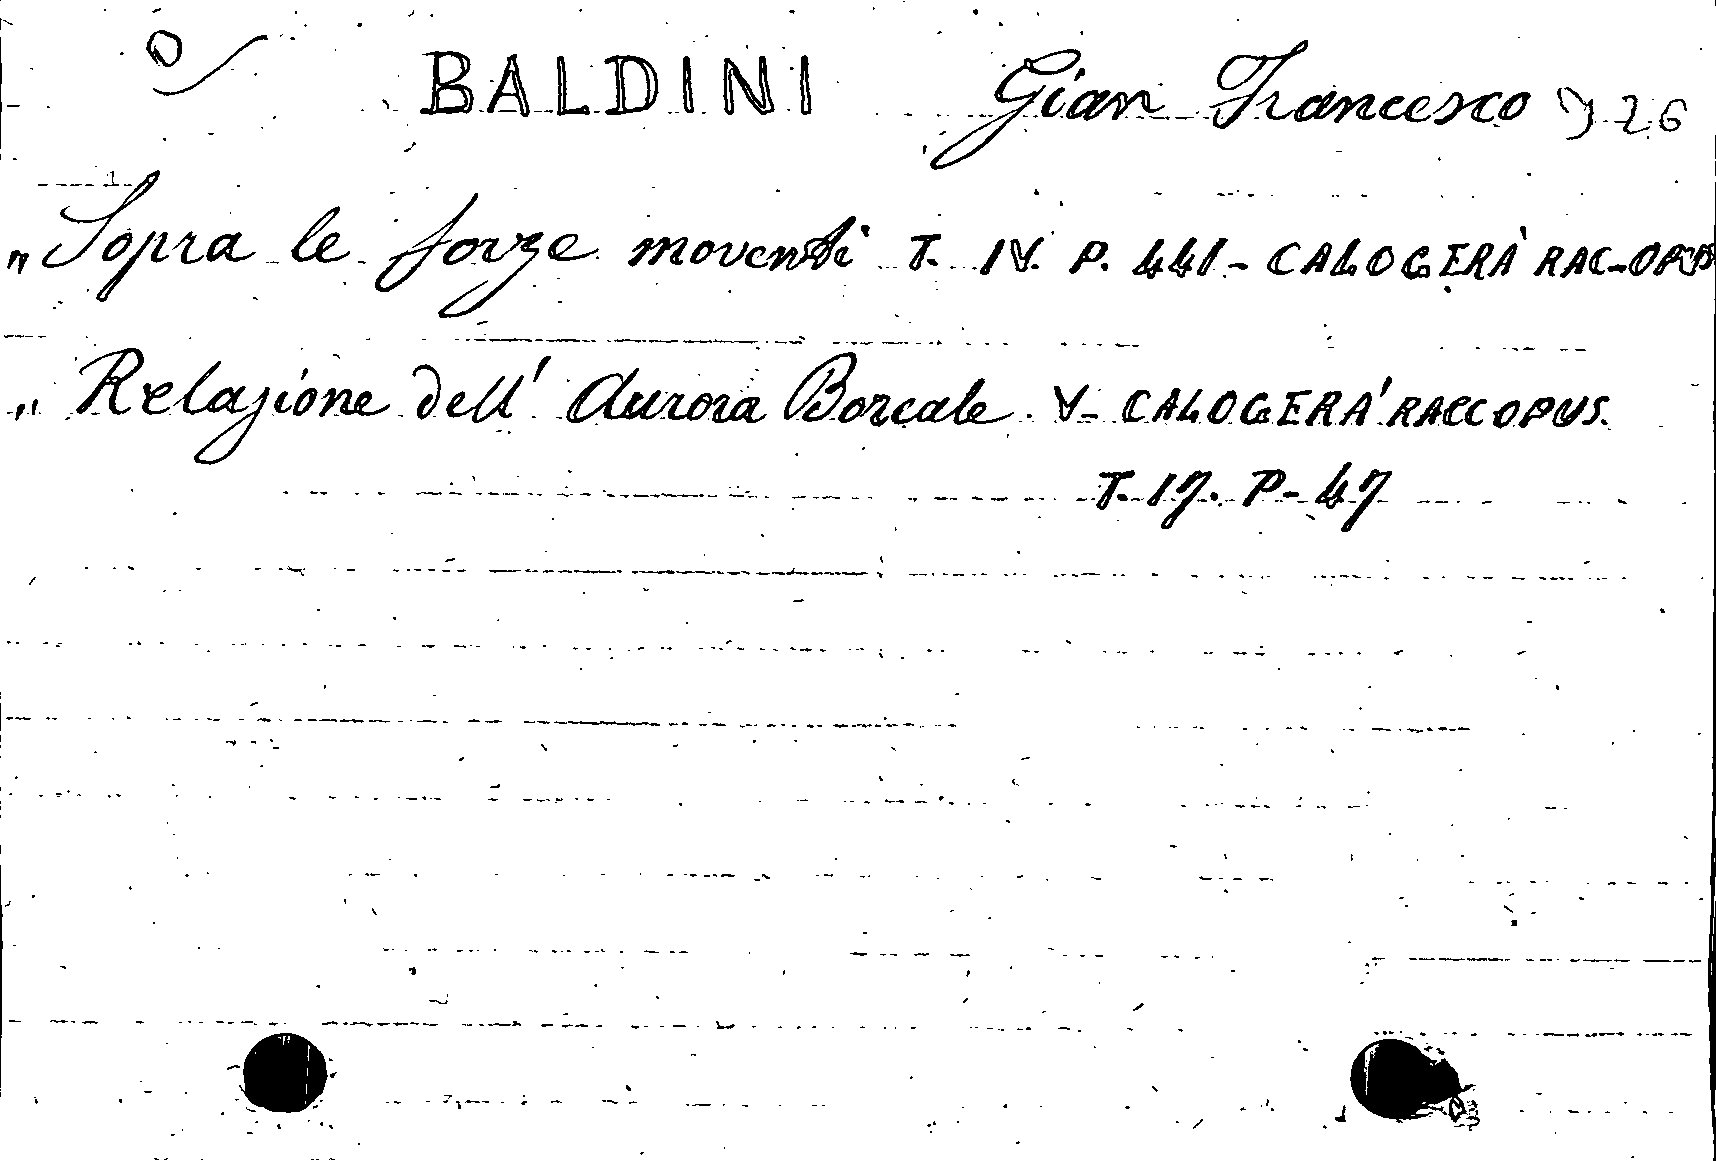 BALDINI Gian Francesco 926
„Sopra le forze moventi T. IV. P. 441 - CALOGERÀ RAC-OPUS
„ Relazione dell' Aurora Boreale. V- CALOGERA' RACCOPUS.
T. 17. P- 47